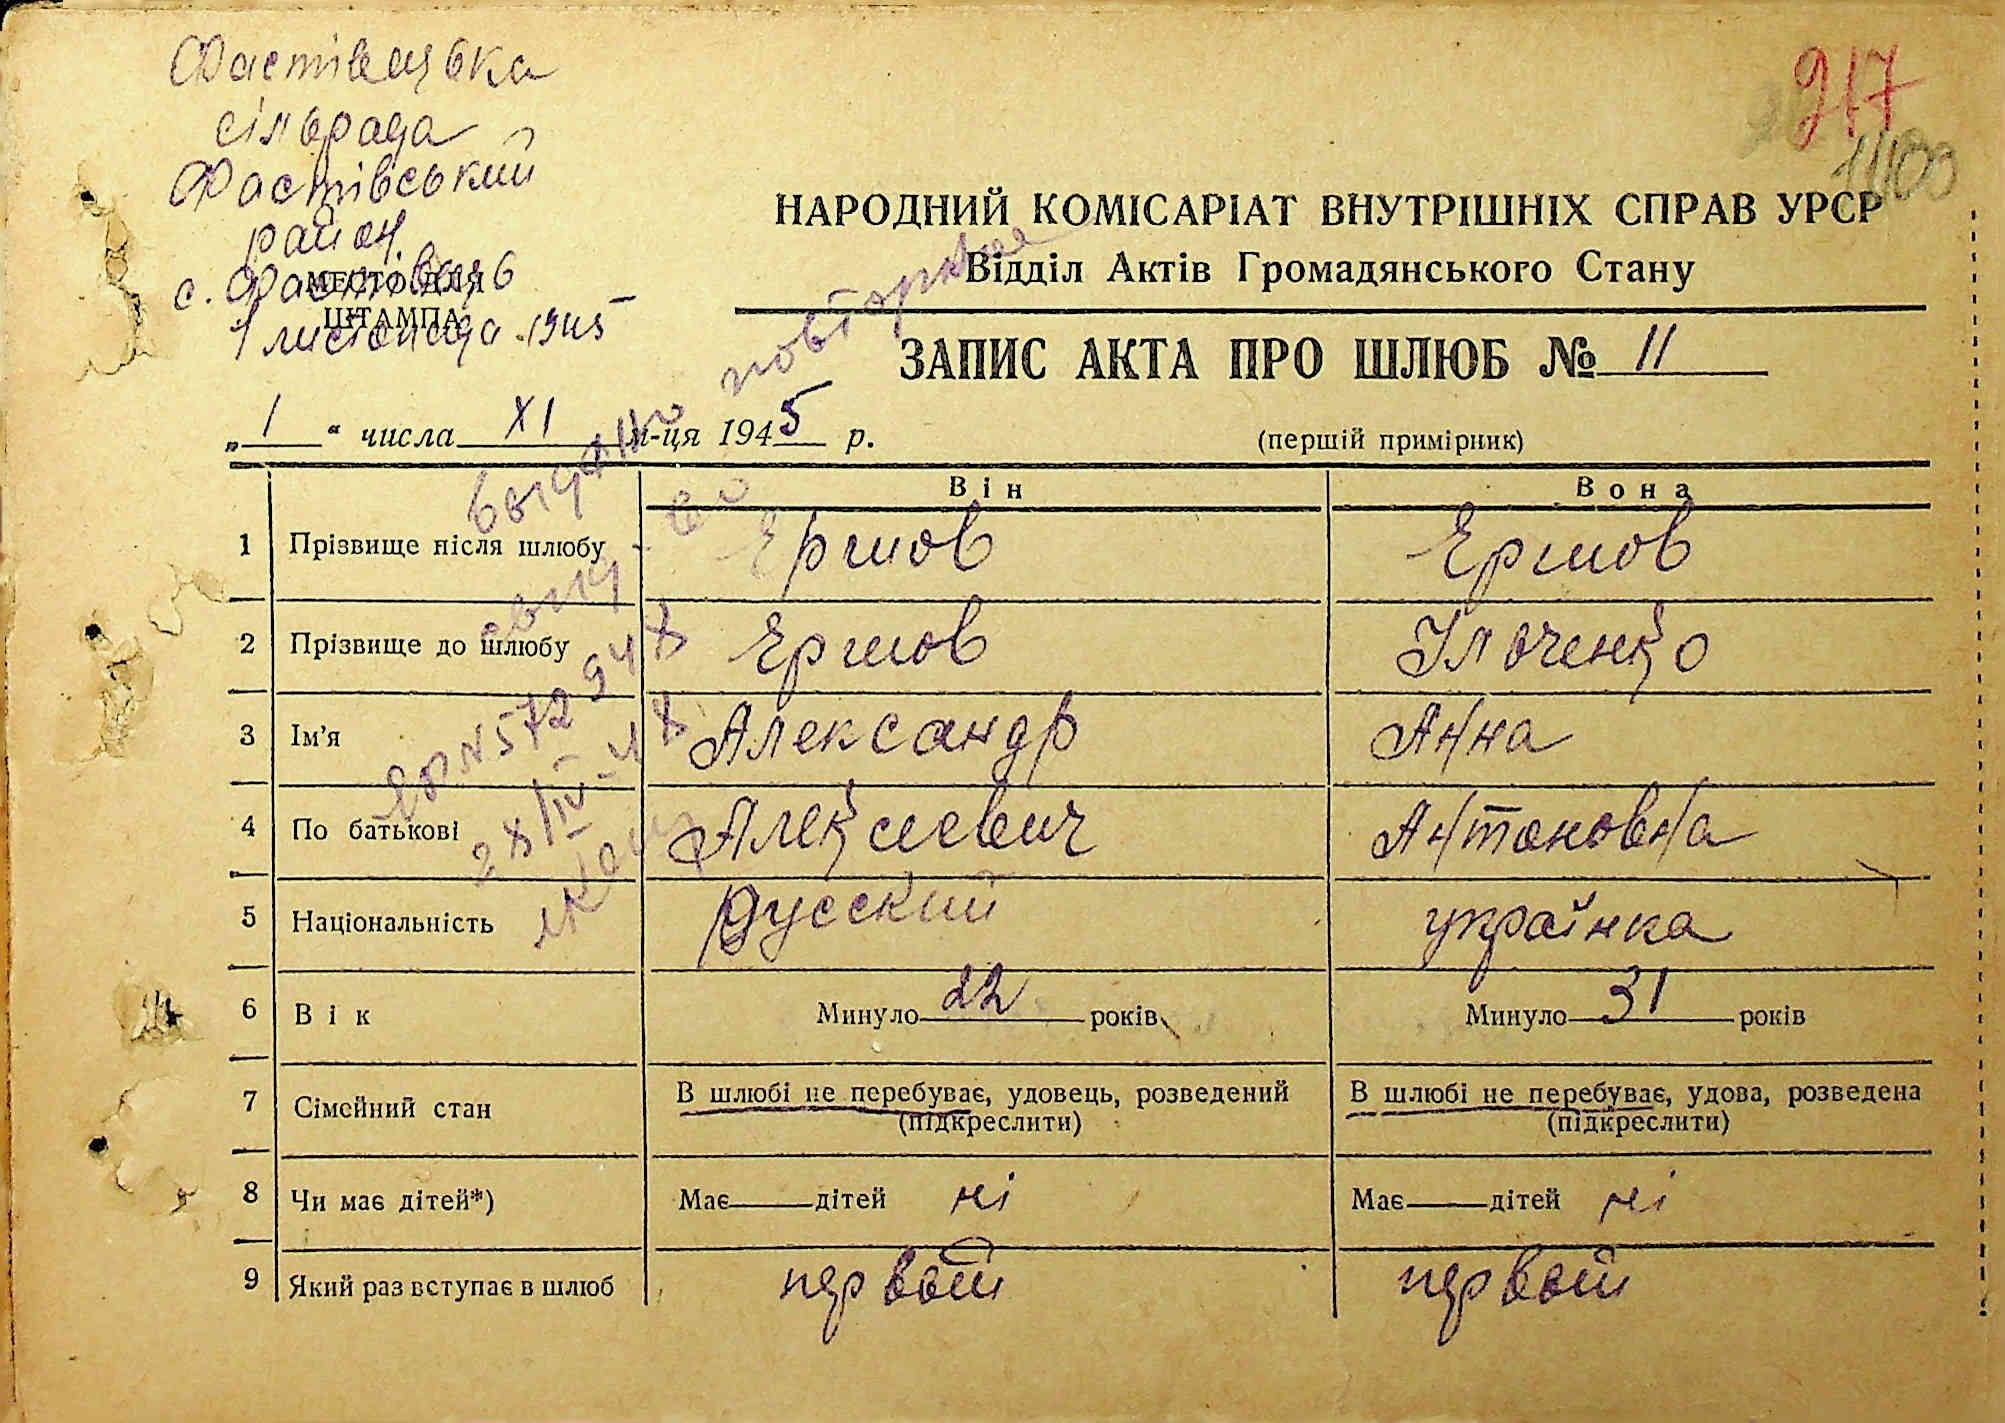 Фастівецька
сільрада
Фастівський
район
с. Фастівець
МЕСТО ДЛЯ
ШТАМПА
1 листопада 1945
217
НАРОДНИЙ КОМІСАРІАТ ВНУТРІШНІХ СПРАВ УРСР
Відділ Актів Громадянського Стану
ЗАПИС АКТА ПРО ШЛЮБ № 11
„1“ числа XI м-ця 1945 р.
(перший примірник)
выдано повторное
ЮР № 572948
28/IV-48
Він Вона
1 Прізвище після шлюбу Ершов Ершов
2 Прізвище до шлюбу Ершов Ільченко
3 Ім’я Александр Анна
4 По батькові Алексеевич Антоновна
5 Національність Русский українка
6 Вік Минуло 22 років Минуло 31 років
7 Сімейний стан В шлюбі не перебуває, удовець, розведений В шлюбі не перебуває, удова, розведена
(підкреслити) (підкреслити)
8 Чи має дітей*) Має дітей ні Має дітей ні
9 Який раз вступає в шлюб первый первый